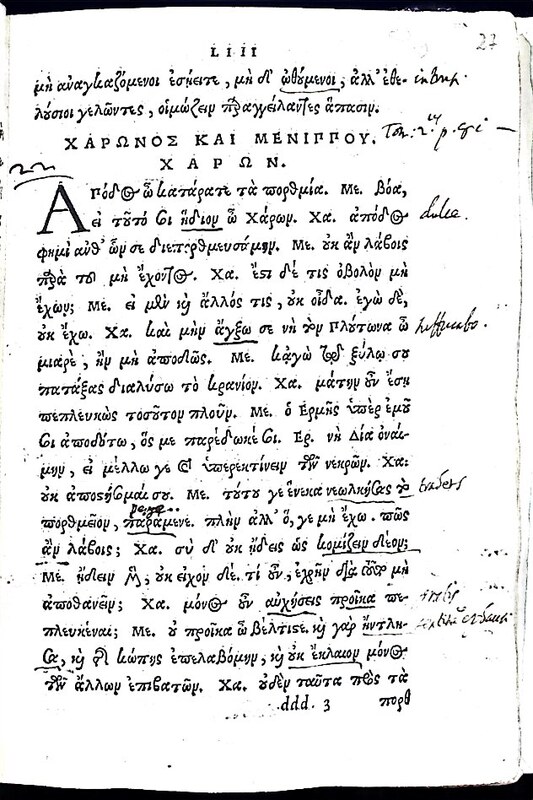 LIII
27
μὴ ἀναγκαζόμενοι ἐσῄειτε, μὴ δ' ὠθύμενοι, ἀλλ' ἐθε-
λούσιοι γελῶντες, οἰμώζειν παραγγείλαντες ἅπασιν.
ΧΑΡΩΝΟΣ ΚΑΙ ΜΕΝΙΠΠΟΥ.
ΧΑΡΩΝ.
ΑΠόδος ὦ κατάρατε τὰ πορθμία. Με. Βόα,
εἰ τοῦτό σοι ἥδιον ὦ Χάρων. Χα. ἀπόδος
φημὶ ἀνθ' ὧν σε διεπορθμευσάμην. Με. οὐκ ἂν λάβοις
παρὰ τοῦ μὴ ἔχοντος. Χα. ἔστι δέ τις ὀβολὸν μὴ
ἔχων; Με. εἰ μὲν καὶ ἄλλός τις, οὐκ οἶδα. ἐγὼ δὲ,
οὐκ ἔχω. Χα. καὶ μὴν ἄγξω σε νὴ τὸν Πλύτωνα ὦ
μιαρὲ, ἢν μὴ ἀποδῶς. Με. κἀγὼ τῷ ξύλῳ σου
πατάξας διαλύσω τὸ κρανίον. Χα. μάτην οὖν ἔσῃ
πεπλευκὼς τοσοῦτον πλοῦν. Με. ὁ Ἑρμῆς ὑπὲρ ἐμοῦ
σοι ἀποδότω, ὅς με παρέδωκέ σοι. Ερ. νὴ Δία ὀναί-
μην, εἰ μέλλω γε καὶ ὑπερεκτίνειν τῶν νεκρῶν. Χα.
οὐκ ἀποστήσομαί σου. Με. τούτου γε ἕνεκα νεωλκήσας τὸ
πορθμεῖον, παράμενε. πλὴν ἀλλ' ὅ, γε μὴ ἔχω. πῶς
ἂν λάβοις; Χα. σὺ δ' οὐκ ᾔδεις ὡς κομίζειν δέον;
Με. ᾔδειν μὲν, οὐκ εἶχον δέ. τί οὖν, ἐχρῆν διὰ τοῦτο μὴ
ἀποθανεῖν; Χα. μόνος οὖν αὐχήσεις προῖκα πε-
πλευκέναι; Με. οὐ προῖκα ὦ βέλτιστε. καὶ γὰρ ἤντλη-
σα, καὶ τῆς κώπης ἐπελαβόμην, καὶ οὐκ ἔκλαιον μόνος
τῶν ἄλλων ἐπιβατῶν. Χα. οὐδὲν ταῦτα πρὸς τὰ
ddd. 3 πορθ